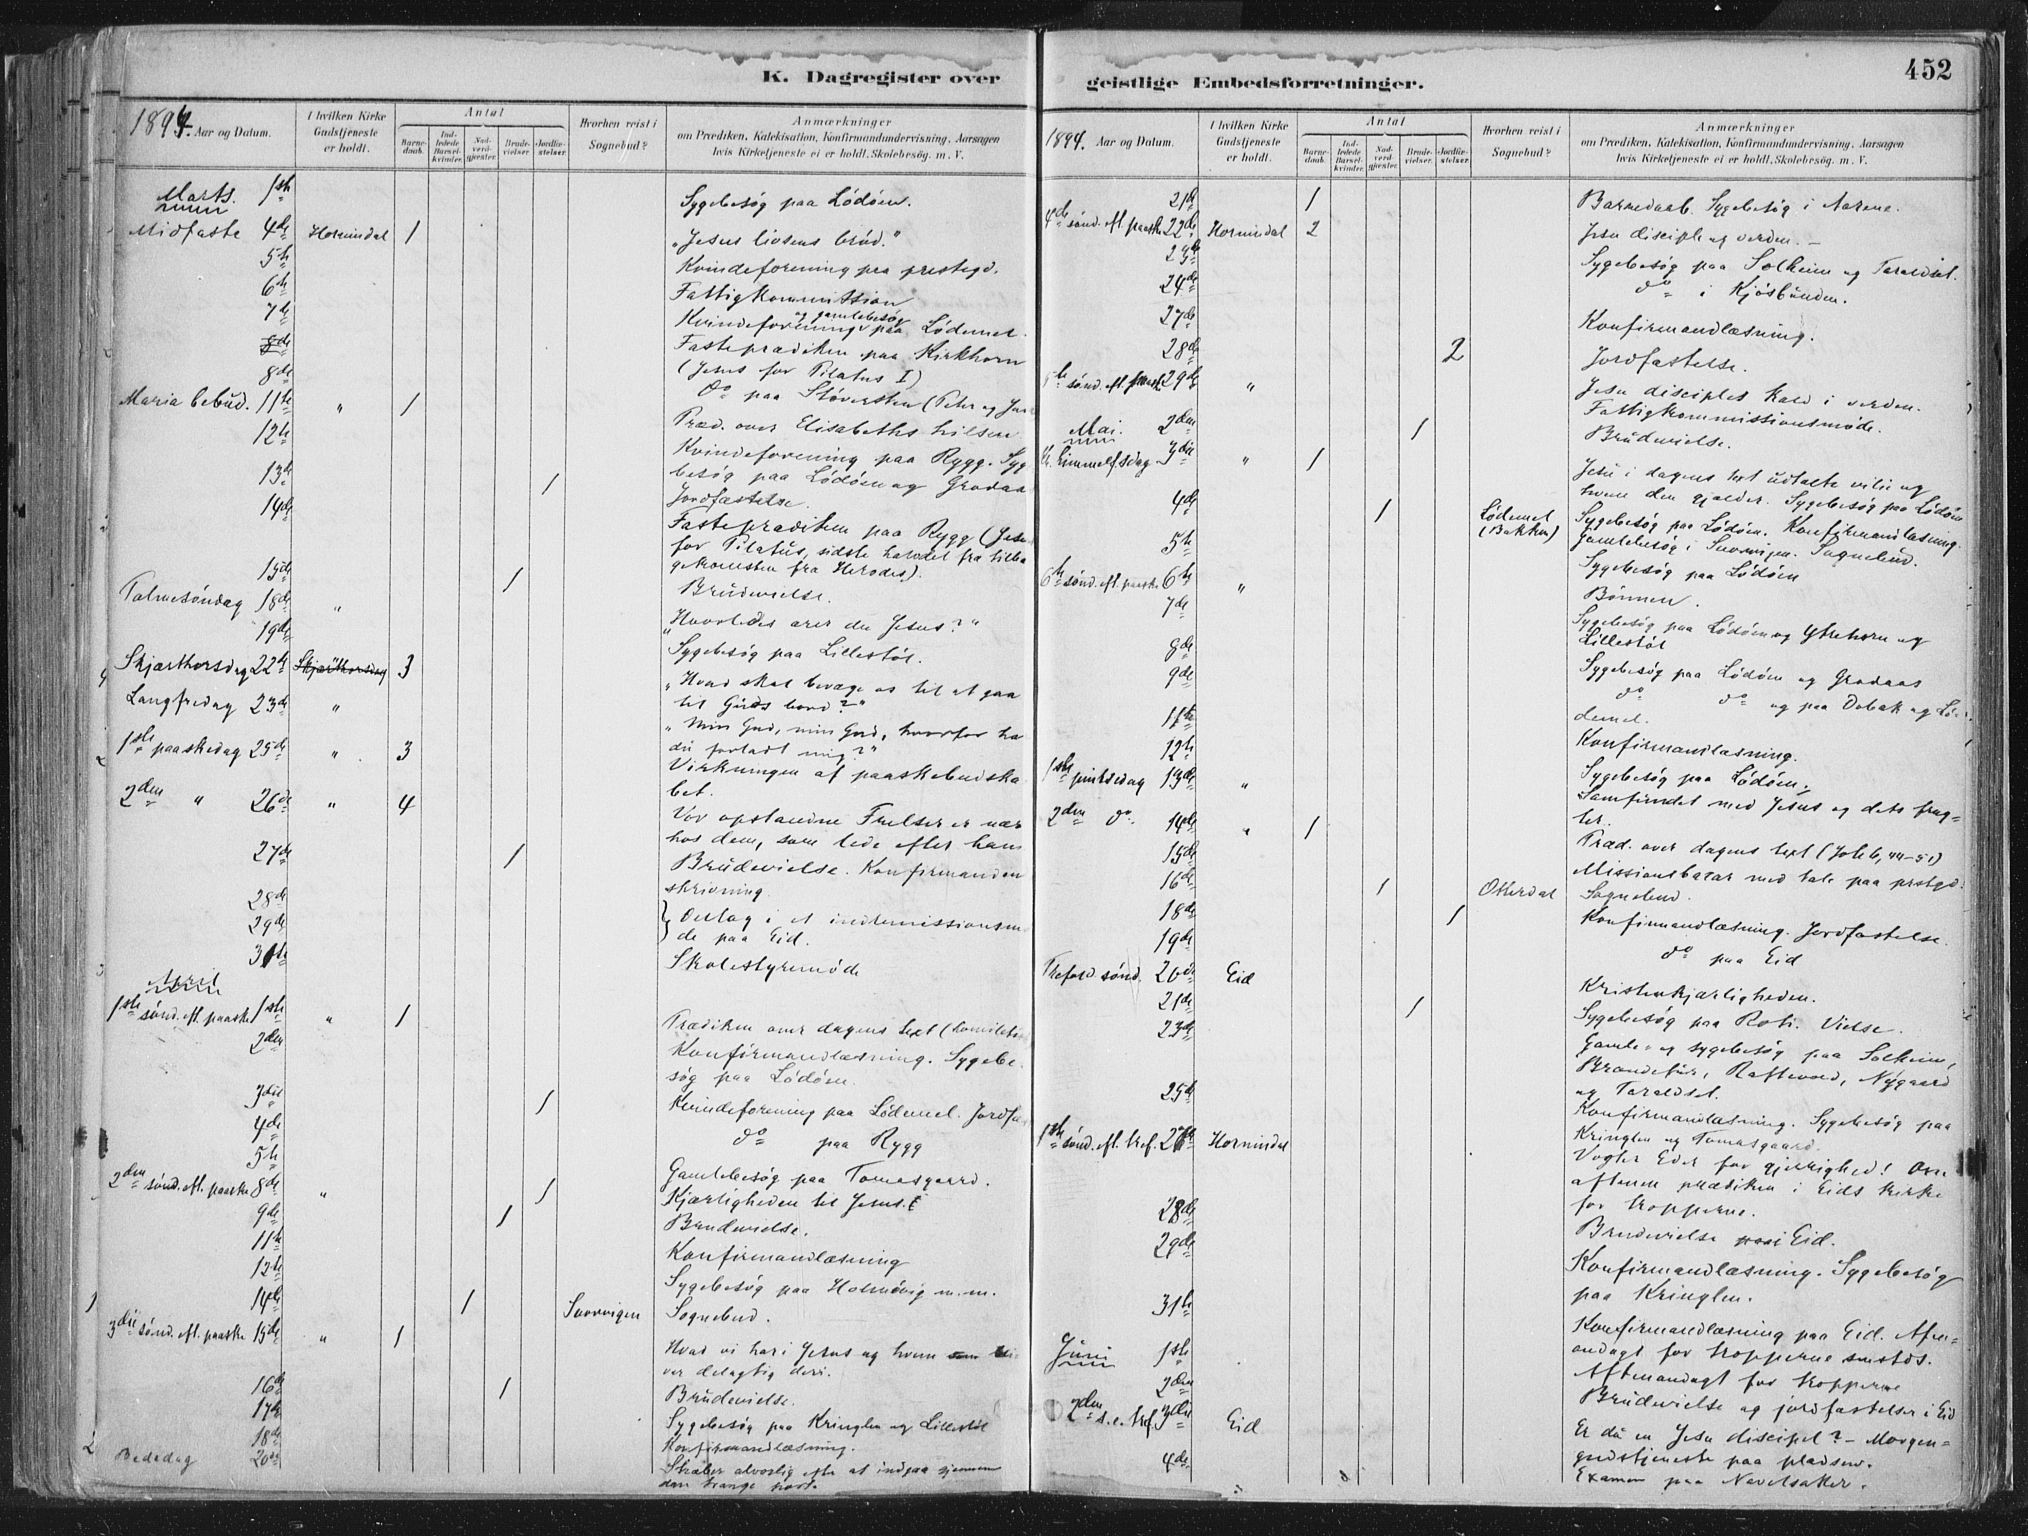 K. Dagregister over
1894. Aar og Datum.
I hvilken Kirke Gudstjeneste er holdt.
Antal
Barnedaab.
Indledede Barselkvinder.
Nadverdgjester.
Brudevielser.
Jordfæstelser.
Hvorhen reist i Sognebud?
Anmærkninger
om Prædiken, Katekisation, Konfirmandundervisning, Aarsagen
hvis Kirketjeneste ei er holdt, Skolebesög. m. V.
Marts. 1ste Sygebesög paa Lödöen.
Midfaste 4de Hornindal 1 „Jesus livsens bröd."
5te Kvindeforening paa prestegd.
6te Fattigkommission
7de Kvindeforening og gamlebesög paa Lödemel.
8de Fasteprædiken paa Kirkhorn
8de (Jesus for Pilatus I)
do paa Stöversten (Peter og
Maria bebud. 11te " 1 Præd. over Elisabeths hilsen
12te Kvindeforening paa Rygg. Syg
13de besög paa Lödöen og Grodaas 1
14de Jordfæstelse.
Fasteprædiken paa Rygg (Jesu
for Pilatus, sidste halvdel fra tilba
15de gekomsten fra Herodes). 1
Palmesöndag 18de " Brüdevielse.
19de „Hvorledes ærer du Jesus?"
Skjærthorsdag 22de Skjærthorsdag 3 Sygebesög paa Lillestöl.
Langfredag 23de " „Hvad skal bevæge os til at gaa
til Guds bord?"
1ste paaskedag 25de " 3 „Min Gud, min Gud, hvorfor ha
du forladt mig?"
Virkningen af paaskebudska
bet.
2den " 26de " 4 Vor opstandne Frelser er nær
hos dem, som lede efter ham
27de 1 Brüdevielse. Konfirmanden
skrivning.
28de
29de } Deltog i et indremissionsm
de paa Eid.
31te Skolestyremöde
April
1ste sönd. ef. paaske 1ste " 1 Prædiken over dagens text
2den Konfirmandlæsning. Sygebe-
sög paa Lödöen.
3die 1 Kvindeforening paa Lödemel. Jordfæ
4de do paa Rygg
5te Gamlebesög paa Tomasgaard.
2den sönd. ef. paaske 8de " 1 Kjærligheden til Jesus.
9de 1 Brudevielse.
11te Konfirmandlæsning
12te Sygebesög paa Holmövig m.m.
14de 1 Svorvigen Sognebud.
3die sönd. ef. paaske 15de " 1 Hvad vi har i Jesus og hvem som bli
ver delagtig deri.
16de 1 Brüdevielse.
17de Sygebesög paa Kringlen og Lillestöl
18de Konfirmandlæsning.
Bededag 20de Stræber alvorlig efter at indgaa gjennem
den trange port.
geistlige Embedsforretninger.
452
1894. Aar og Datum.
I hvilken Kirke Gudstjeneste er holdt.
Antal
Barnedaab.
Indledede Barselkvinder.
Nadverdgjester.
Brudevielser.
Jordfæstelser.
Hvorhen reist i Sognebud?
Anmærkninger
om Prædiken, Katekisation, Konfirmandundervisning, Aarsagen
hvis Kirketjeneste ei er holdt, Skolebesög. m. V.
21de 1 Barnedaab. Sygebesög i
4de sönd. ef. paaske 22de Hornindal 2 Jesu disciple og verden.
23de Sygebesög paa Solheim og Taraldset.
24de do i Kjösbunden.
27de Konfirmandlæsning.
28de 2 Jordfæstelse.
5te sönd. ef. paaske 29de " Jesu disciples kald i verden.
Mai. 2den Fattigkommissionsmöde.
1 Brüdevielse.
Kr. himmelf.dag 3die " 1 Jesu i dagens text udtalte vilie og
hvem den gjælder. Sygebesög paa Lödöen
4de 1 Lödemel (Bakken) Sygebesög paa Lödöen. Konfirmandlæsning.
5te Gamlebesög i Svorvigen. Sognebud.
Sygebesög paa Lödöen
6te sönd. ef. paaske 6te " Bönnen.
7de Sygebesög paa Lödöen og Ytrehorn og
Lillestöl
8de Sygebesög paa Lödöen og Grodaas
9de do do og paa Dobak og Lö-
demel.
11te Konfirmandlæsning.
12te Sygebesög paa Lödöen.
1ste pintsedag 13de " Samfundet med Jesus og dets frug-
ter.
2den do. 14de " 1 Præd. over dagens text (Joh 6, 44-51)
15de Missionsbazar med tale paa prstgd.
16de 1 Otterdal Sognebud.
18de 1 Konfirmandlæsning. Jordfæstelse.
19de do paa Eid
Trefold. sönd. 20de Eid Kristenkjærligheden.
21de 1 Sygebesög paa Roti. Vielse.
23de Gamle- og sygebesög paa Solheim,
Raftevold, Nygaard
og Taraldset.
25te Konfirmandlæsning. Sygebesög paa
Kringlen og Tomasgaard.
1ste sönd. ef. tref. 27de Hornindal Vogter Eder for gjerrighed! Om
aftenen prædiken i Eids kirke
for tropperne.
28de Brudevielse paa i Eid.
29de Konfirmandlæsning. Sygebesög
paa Kringlen.
31te Konfirmandlæsning paa Eid. Aften-
andagt for tropperne smstds.
Juni 1ste Aftenandagt for tropperne
2den Brüdevielse og jordfæstelser i Eid
2den s. e. tref. 3die Eid Er du en Jesu discipel? - Morgen-
gudstjeneste paa pladsen.
4de Examen paa Navelsaker.